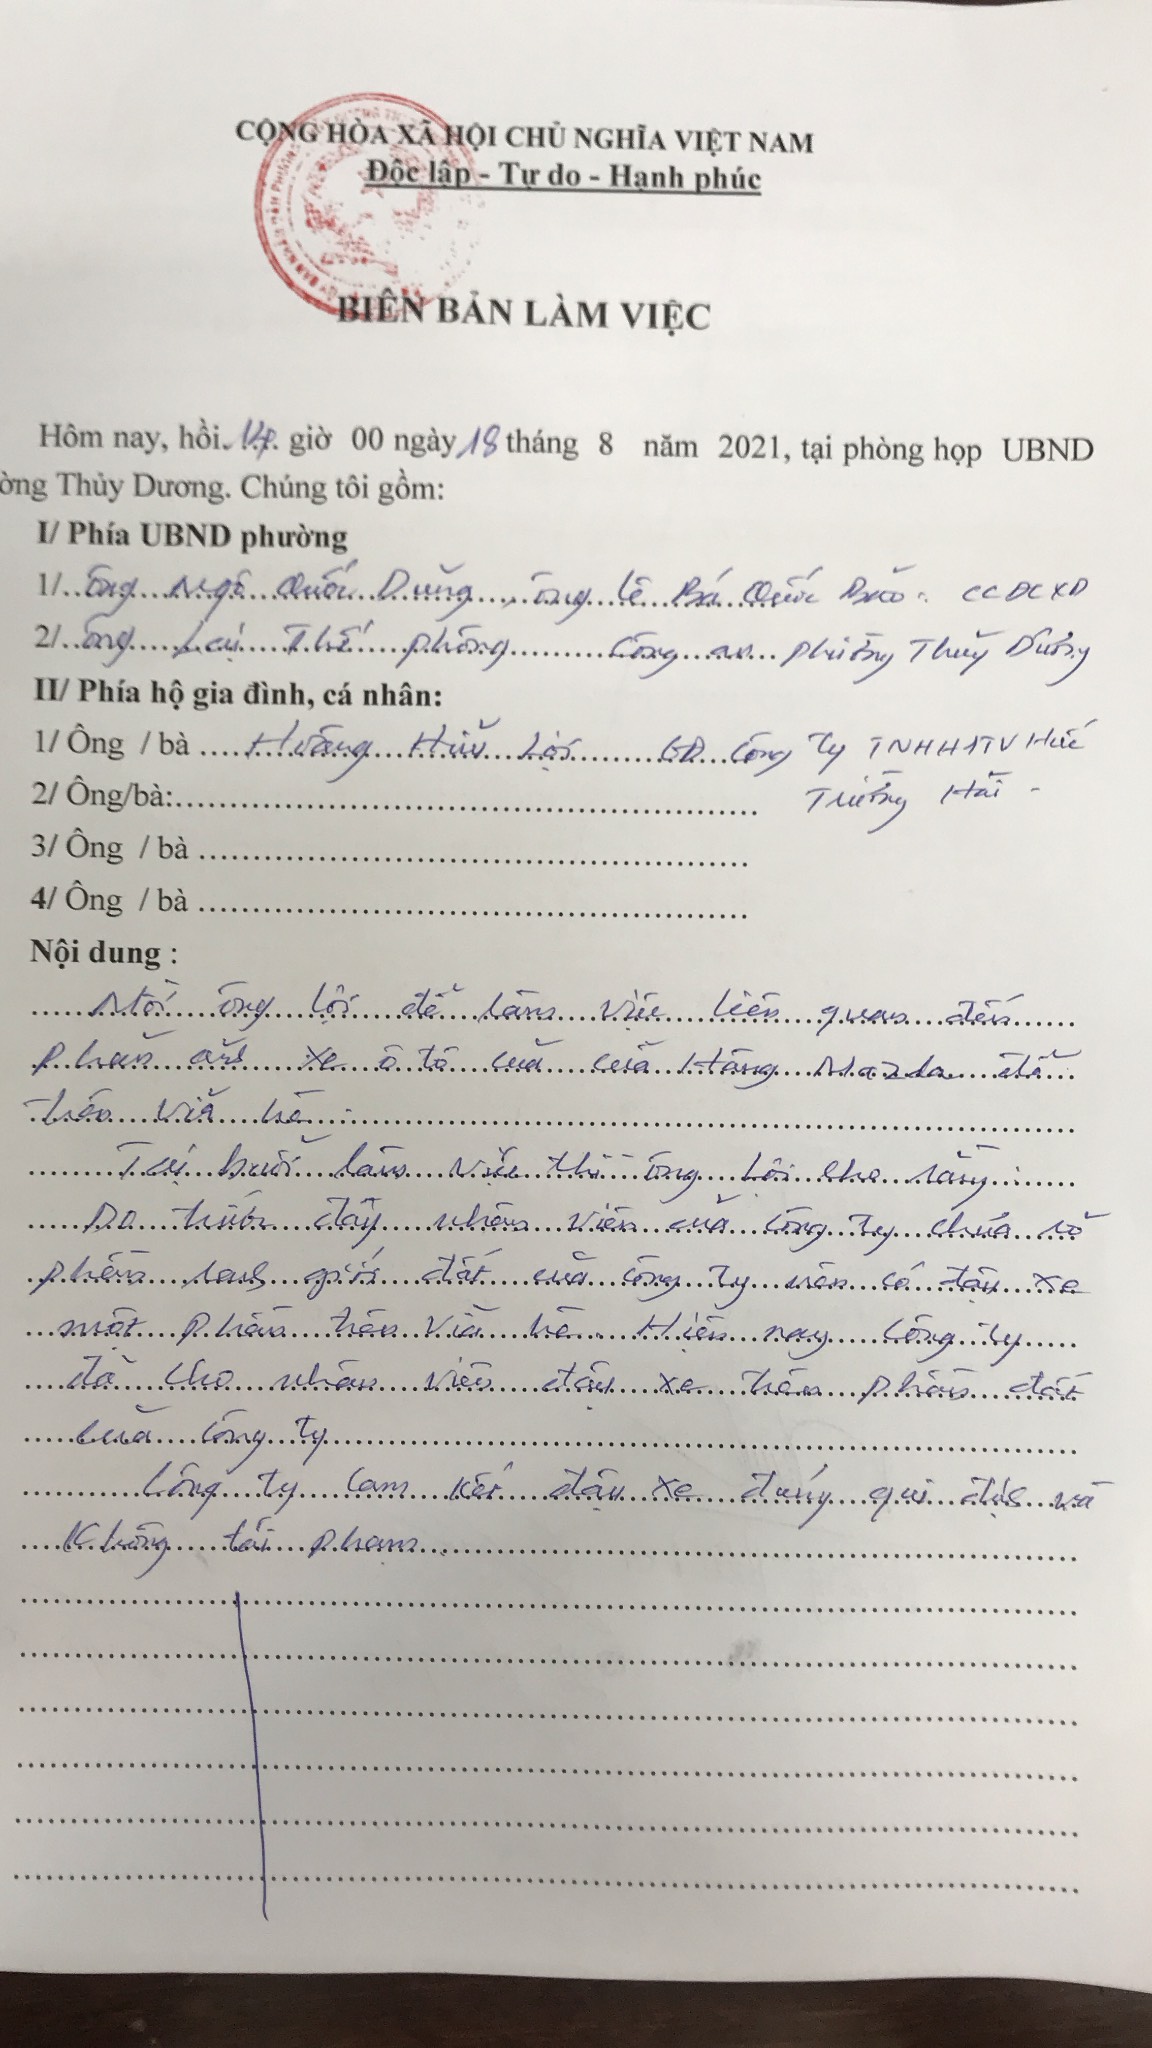 CỘNG HÒA XÃ HỘI CHỦ NGHĨA VIỆT NAM
Độc lập - Tự do - Hạnh phúc
BIÊN BẢN LÀM VIỆC
Hôm nay, hồi 14 giờ 00 ngày 18 tháng 8 năm 2021, tại phòng họp UBND
ờng Thủy Dương. Chúng tôi gồm:
I/ Phía UBND phường
1/ ông Ngô Quốc Dũng, ông Lê Bá Quốc Bảo. CCĐCXD
2/ ông Lại Thế Phòng Công an phường Thủy Dương
II/ Phía hộ gia đình, cá nhân:
1/ Ông / bà Hoàng Hữu Lợi GĐ Công Ty TNHH1TV Huế
Trường Hải -
2/ Ông/bà:
3/ Ông / bà
4/ Ông / bà
Nội dung :
Mời ông Lợi để làm việc liên quan đến
phản ánh xe ô tô của cửa Hàng Mazda để
trên vỉa hè.
Tại buổi làm việc thì ông Lợi cho rằng:
Do trước đây nhân viên của công ty chưa rõ
phân ranh giới đất của công ty nên có đậu xe
một phần trên vỉa hè. Hiện nay Công ty
đã cho nhân viên đậu xe trên phần đất
của công ty
Công ty cam kết đậu xe đúng qui định và
không tái phạm.